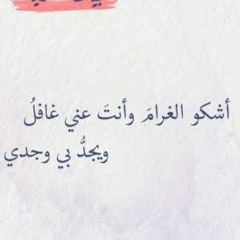 أشكو الغرامَ وأنتَ عني غافلُ
ويجدُّ بي وجدي